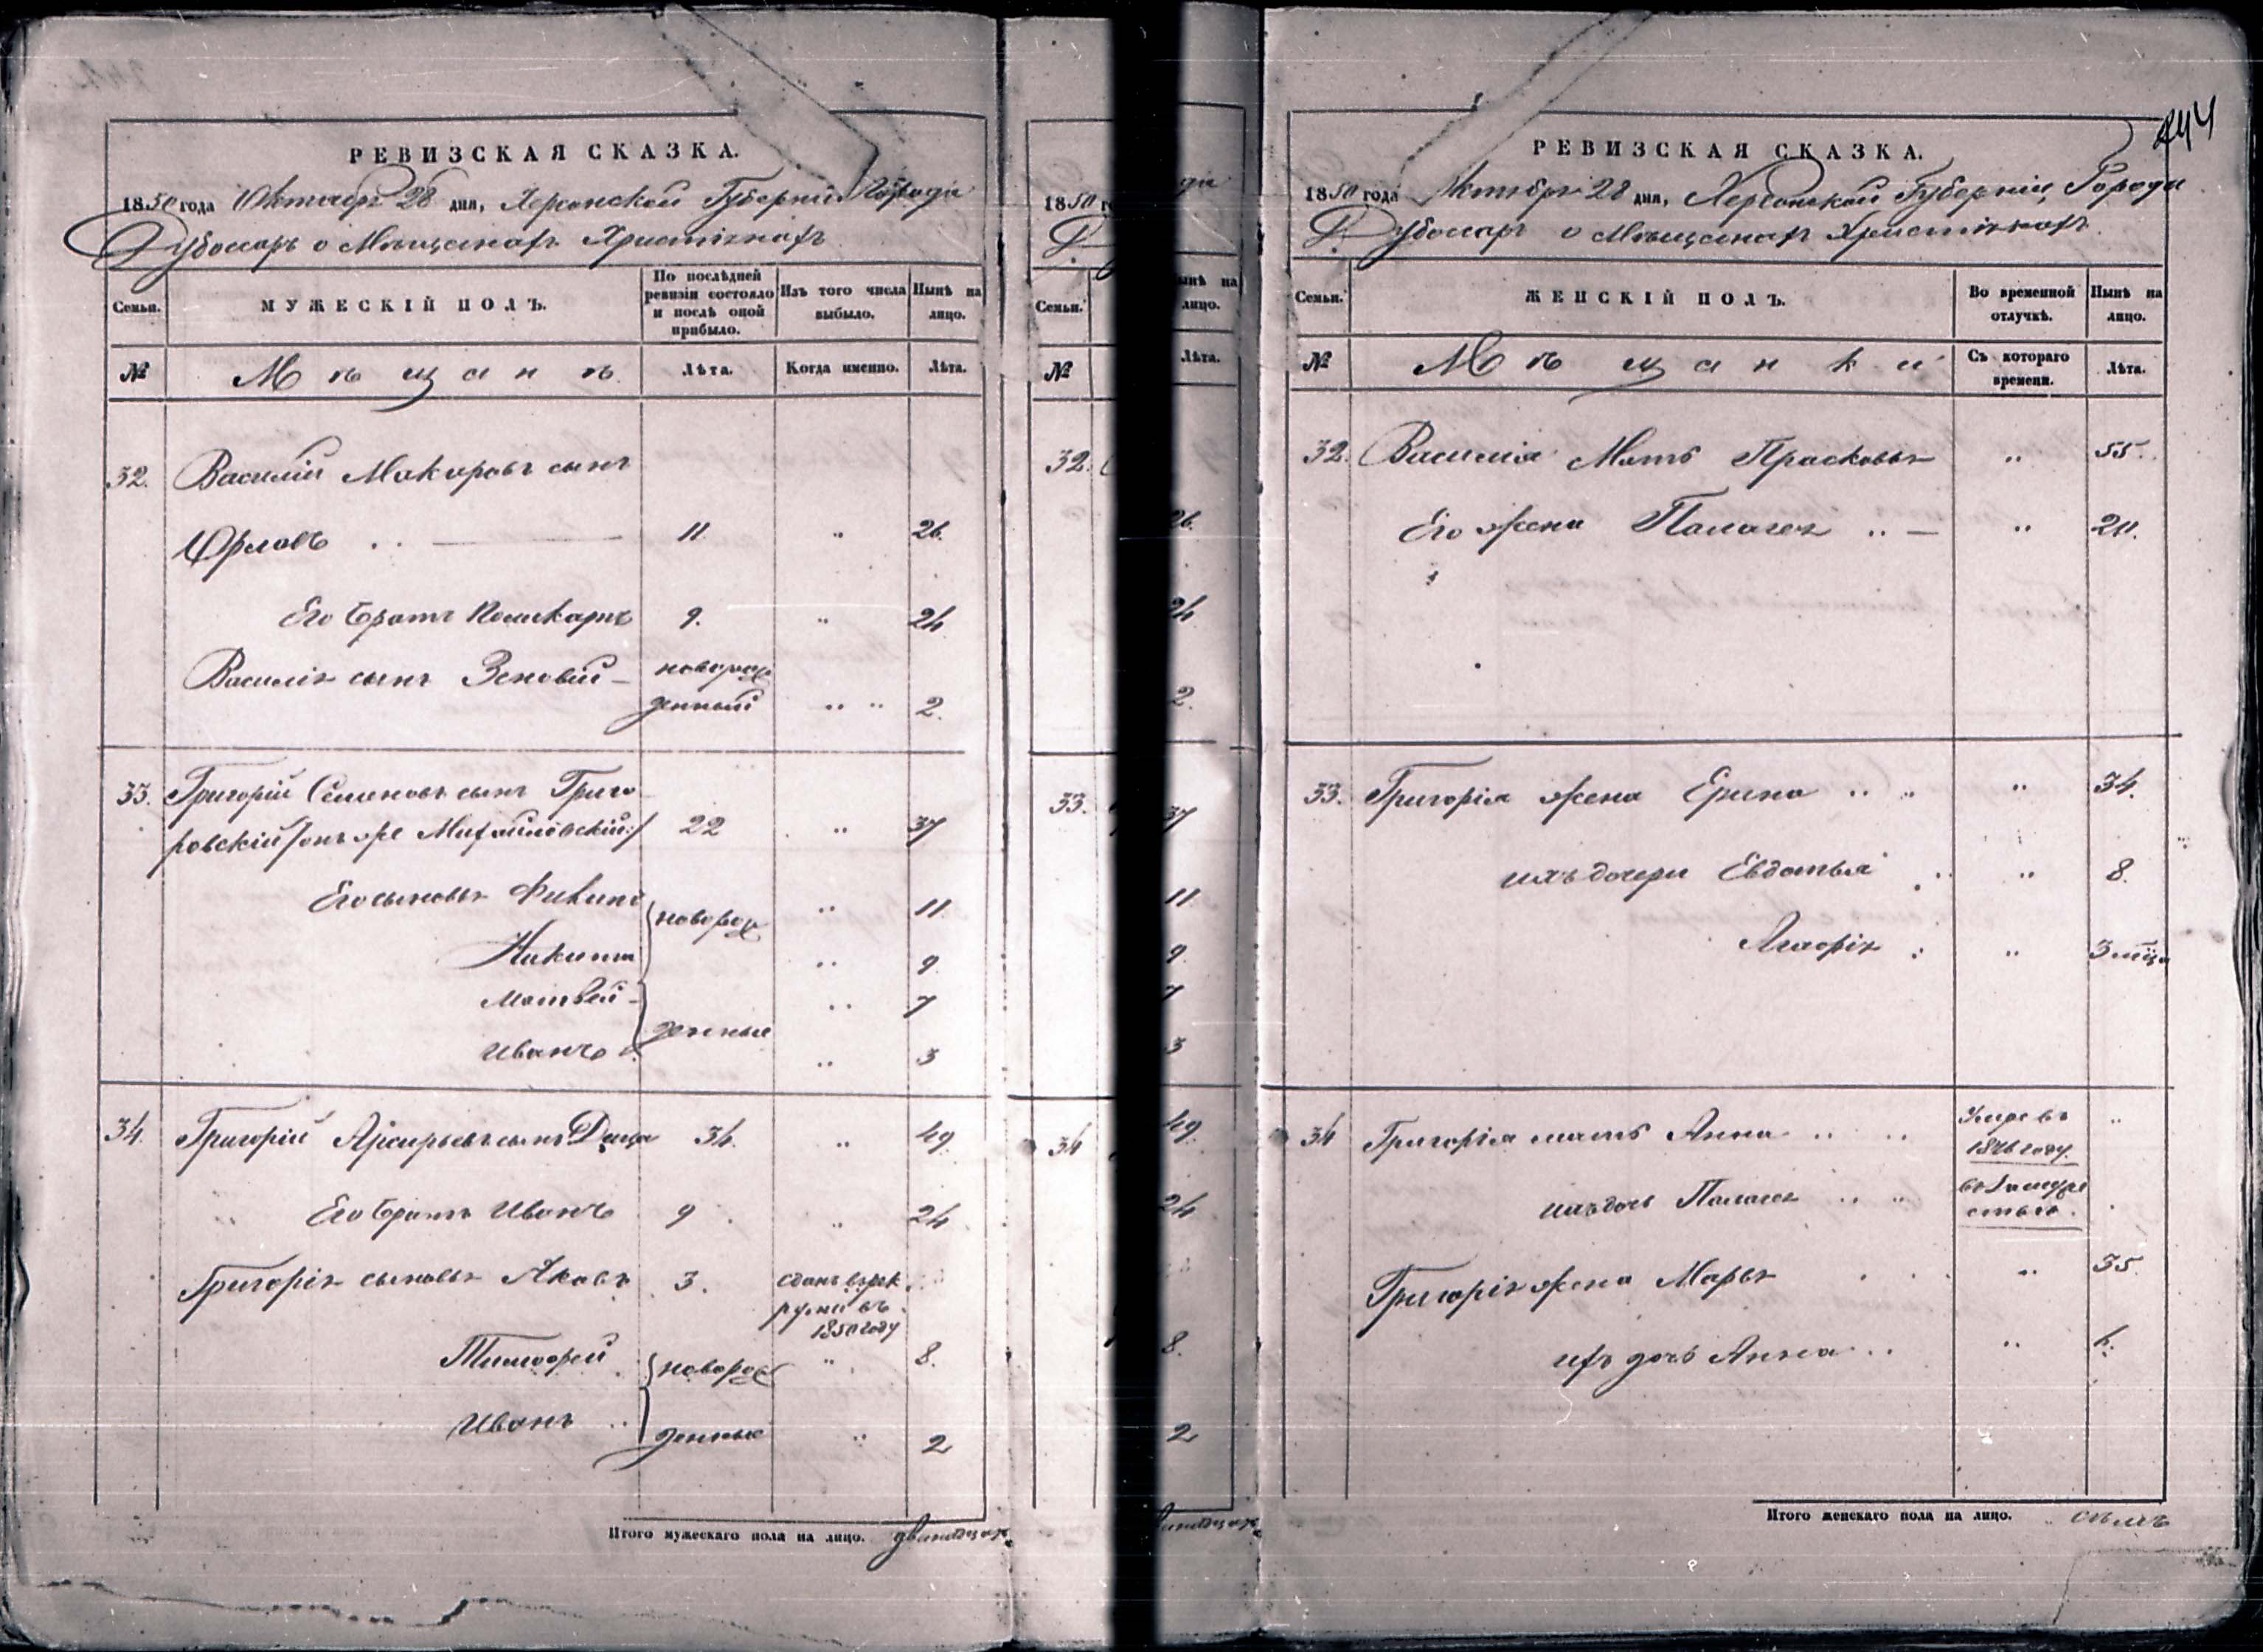 РЕВИЗСКАЯ СКАЗКА.
1850 года Октября 28 дня, Херсонской Губерніи Города
Дубоссаръ о Мѣщанахъ Христіянахъ
Семьи.
МУЖЕСКІЙ ПОЛЪ.
По послѣдней ревизіи состояло и послѣ оной прибыло.
Изъ того числа выбыло.
Нынѣ на лицо.
№
Мѣщанъ
Лѣта.
Когда именно.
Лѣта.
32. Василій Макаровъ сынъ
Орловъ 11 „ 26.
Его братъ Поликарпъ 9. „ 24
Василія сынъ Зеновій новорож
денный „ „ 2.
33. Григорій Семеновъ сынъ Григо
ровскій /онъ же Михайловскій:/ 22 „ 37
Его сыновья новорож „ 11
Никита „ 9
Матвей „ 7
денные
Иванъ „ 3
34. Григорій сынъ 34. „ 49
Его братъ Иванъ 9 „ 24
Григорія сыновья Яковъ 3. сданъ въ рек
руты въ
1850 году
Тимофей новорож „ 8.
Иванъ денные „ 2
Итого мужескаго пола на лицо. двенадцать
1850 г
Семьи.
№
32.
33.
34
Нынѣ на лицо.
Лѣта.
26.
24
2.
37
11
9
7
3
49
24
8.
2
РЕВИЗСКАЯ СКАЗКА.
244
1850 года Октября 28 дня, Херсонской Губерніи, Города
Дубоссаръ о Мѣщанахъ Христіянахъ.
Семьи.
ЖЕНСКІЙ ПОЛЪ.
Во временной отлучкѣ.
Нынѣ на лицо.
№
Мѣщанки
Съ котораго времени.
Лѣта.
32. Василія Мать Прасковья „ 55.
Его жена Палагея „ 20.
33. Григорія жена Ерина „ „ „ 34.
ихъ дочери Евдотья „ 8.
„ 3 мѣца
34 Григорія мать Анна „ „ Умре въ „
1846 году.
ихъ дочь Палагея „ „ въ замуже
стве.
Григорія жена Марья „ 35.
ихъ дочь Анна „ „ 4.
Итого женскаго пола на лицо. семь